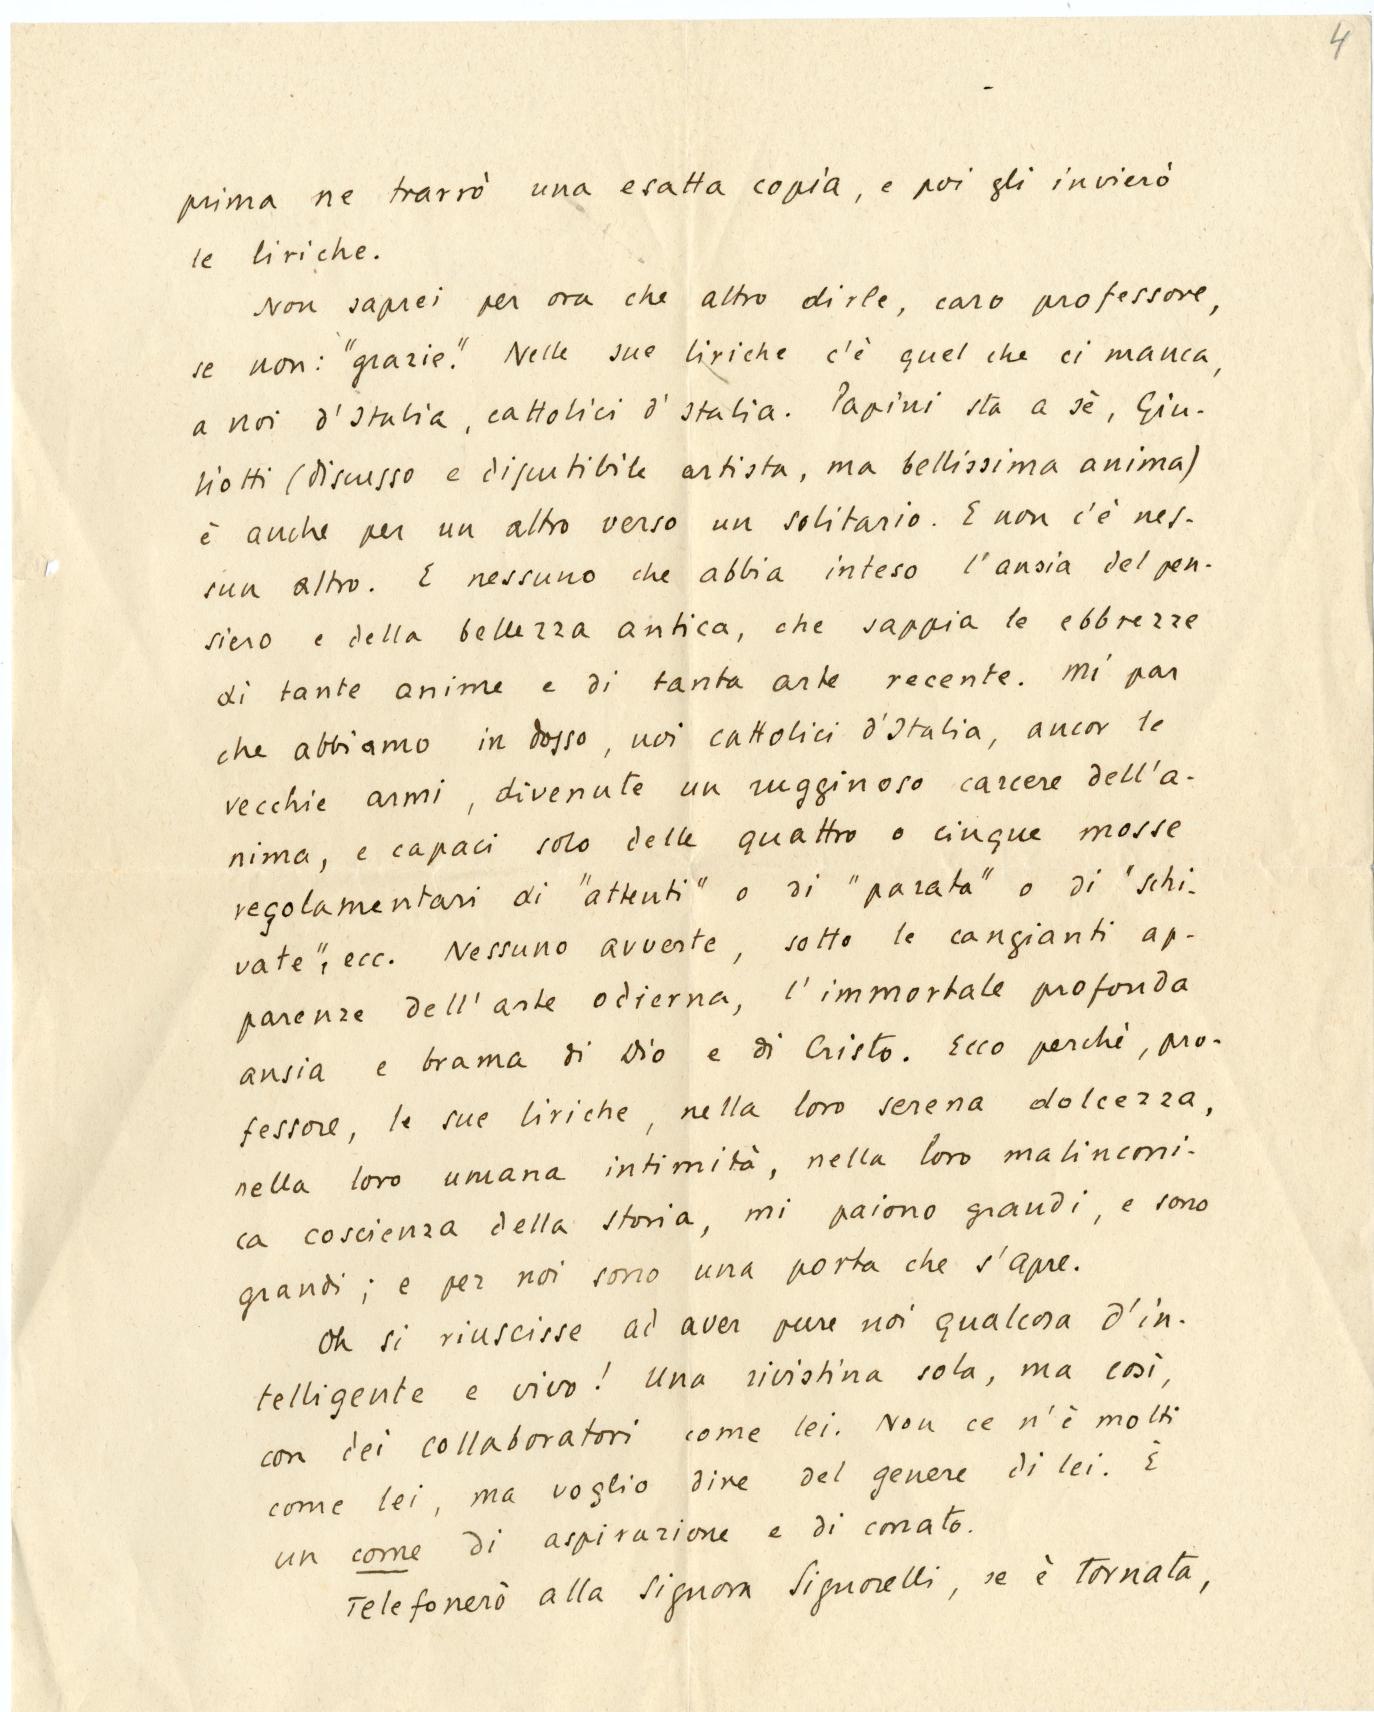 4
prima ne trarrò una esatta copia, e poi gli invierò
le liriche.
Non saprei per ora che altro dirle, caro professore,
se non: "grazie". Nelle sue liriche c'è quel che ci manca,
a noi d'Italia, cattolici d'Italia. Papini sta a sè, Giu-
liotti (discusso e discutibile artista, ma bellissima anima)
è anche per un altro verso un solitario. E non c'è nes-
sun altro. E nessuno che abbia inteso l'ansia del pen-
siero e della bellezza antica, che sappia le ebbrezze
di tante anime e di tanta arte recente. Mi par
che abbiamo in dosso, noi cattolici d'Italia, ancor le
vecchie armi, divenute un rugginoso carcere dell'a-
nima, e capaci solo delle quattro o cinque mosse
regolamentari di "attenti" o di "parata" o di "schi-
vate", ecc. Nessuno avverte, sotto le cangianti ap-
parenze dell'arte odierna, l'immortale profonda
ansia e brama di Dio e di Cristo. Ecco perchè, pro-
fessore, le sue liriche, nella loro serena dolcezza,
nella loro umana intimità, nella loro malinconi-
ca coscienza della storia, mi paiono grandi, e sono
grandi; e per noi sono una porta che s'apre.
Oh si riuscisse ad aver pure noi qualcosa d'in-
telligente e vivo! Una rivistina sola, ma così,
con dei collaboratori come lei. Non ce n'è molti
come lei, ma voglio dire del genere di lei. È
un come di aspirazione e di conato.
Telefonerò alla Signora Signorelli, se è tornata,